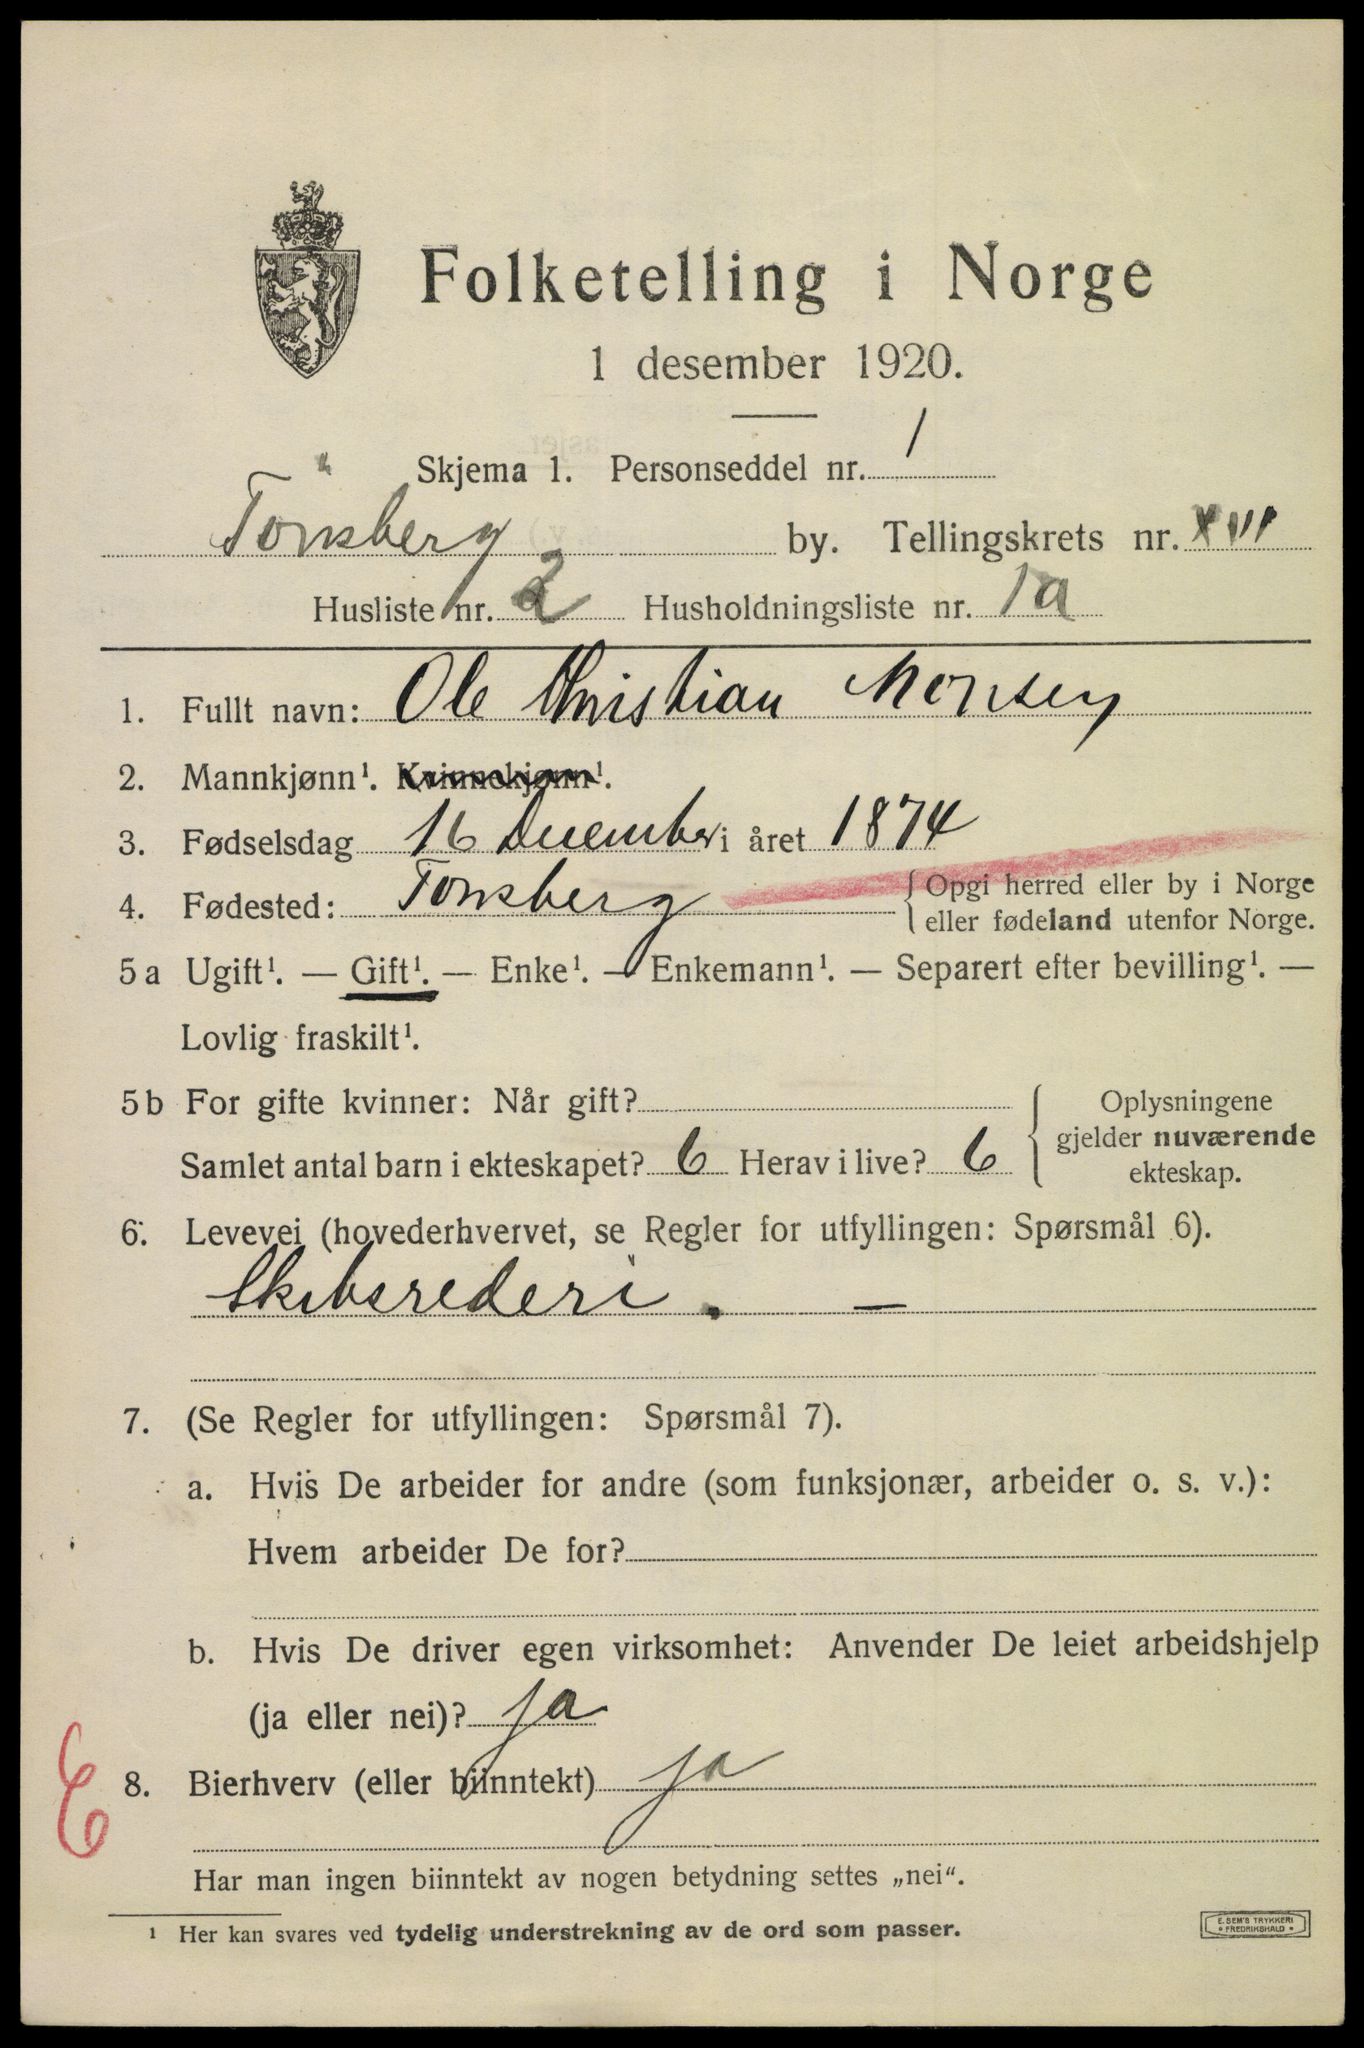 Folketelling i Norge
1 desember 1920.
Skjema 1. Personseddel nr. 1
Tönsberg by. Tellingskrets nr. XVII
Husliste nr. 2 Husholdningsliste nr. 1a
1. Fullt navn: Ole Christian Monsen
2. Mannkjønn¹. Kvinnekjønn¹.
3. Fødselsdag 16 December i året 1874
4. Fødested: Tonsberg { Opgi herred eller by i Norge
eller fødeland utenfor Norge.
5 a Ugift¹. — Gift¹. — Enke¹. — Enkemann¹. — Separert efter bevilling¹. —
Lovlig fraskilt¹.
5 b For gifte kvinner: Når gift? { Oplysningene
gjelder nuværende
Samlet antal barn i ekteskapet? 6 Herav i live? 6 ekteskap.
6. Levevei (hovederhvervet, se Regler for utfyllingen: Spørsmål 6).
Skibsrederi. —
7. (Se Regler for utfyllingen: Spørsmål 7).
a. Hvis De arbeider for andre (som funksjonær, arbeider o. s. v.):
Hvem arbeider De for?
b. Hvis De driver egen virksomhet: Anvender De leiet arbeidshjelp
(ja eller nei)? ja
E
8. Bierhverv (eller biinntekt) ja
Har man ingen biinntekt av nogen betydning settes „nei“.
¹ Her kan svares ved tydelig understrekning av de ord som passer.
E. SEM'S TRYKKERI
• FREDRIKSHALD •